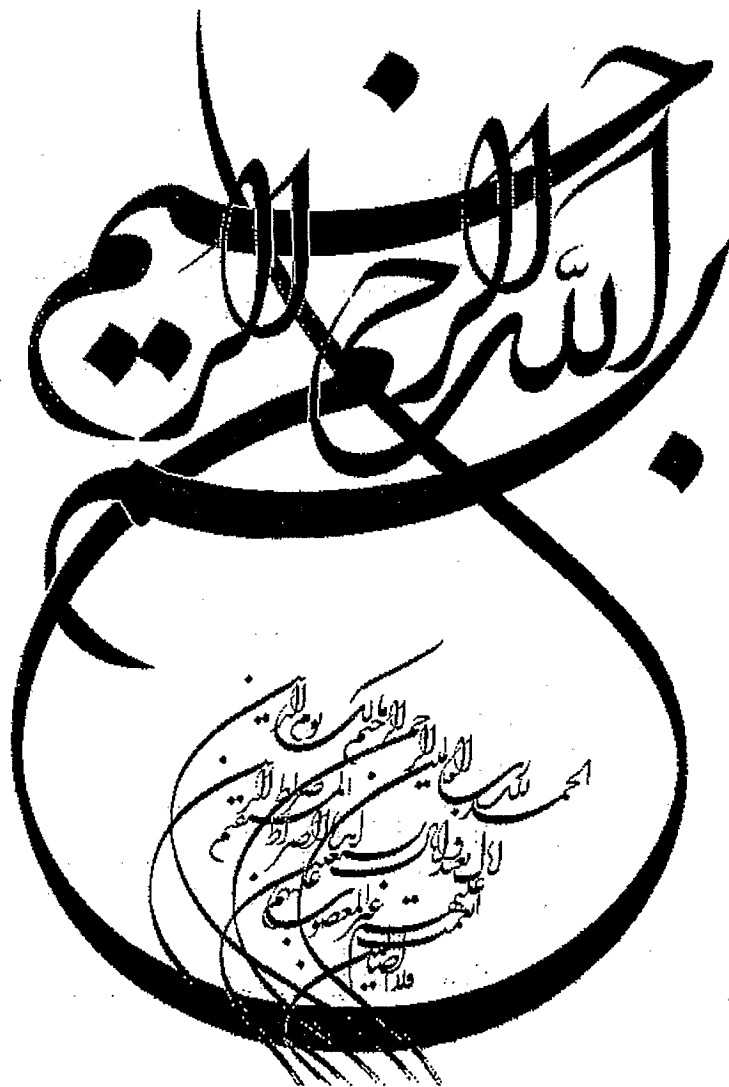 بسم الله الرحمن الرحيم
الحمد لله رب العالمين
الرحمن الرحيم مالك يوم الدين
اياك نعبد واياك نستعين
اهدنا الصراط المستقيم صراط الذين
انعمت عليهم
غير المغضوب عليهم
ولا الضالين